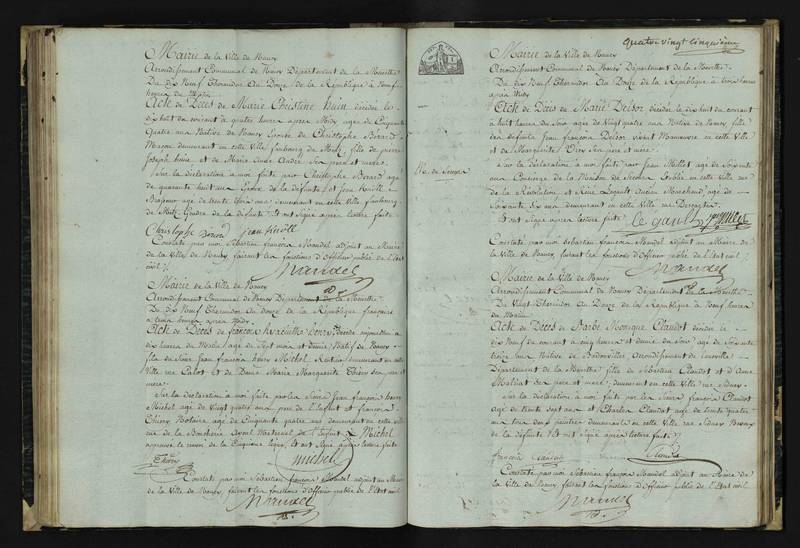 Mairie de la Ville de Nancy
Arrondissement Communal de Nancy Département de la Meurthe
Du dix Neuf Thermidor an Douze de la République à Neuf
heures du Matin
Acte de Deces de Marie Christine huin décédée le
dix huit du courant à quatre heures apres Midy agée de Cinquante
Quatre ans Native de Nancy Epouse de Christophe Berard
Maçon demeurant en cette Ville faubourg de Metz, fille de pierre
Joseph huin et de Marie Anne André Ses pere et mere
Sur la déclaration à moi faite par Christophe Berard agé
de quarante huit ans Epoux de la défunte et Jean
agé de trente demeurant en cette Ville faubourg
de Metz, Gendre de la défunte, et ont signé apres lecture faite
Christophe
Constaté par moi Sébastien françois Mandel adjoint au Maire
de la Ville de Nancy faisant les fonctions d'Officier public de l'Etat
civil
Mandel
Mairie de la Ville de Nancy
Arrondissement Communal de Nancy Département de la Meurthe
Du dix Neuf Thermidor an douze de la République françoise
à trois heures apres Midy
Acte de Deces de françois hyacinthe henry décédé aujourdhui à
dix heures du Matin, agé de Sept mois et demie Natif de Nancy
fils de Sieur Jean françois henry Michel demeurant en cette
Ville rue et de Dame Marie Marguerite Thiery Ses pere et
mere
Sur la déclaration à moi faite par les Sieurs Jean françois henry
Michel agé de Vingt quatre ans pere de l'Enfant et françois
Thiery Notaire agé de Cinquante quatre ans demeurant en cette Ville
rue de la Boucherie ayeul Maternel de l'Enfant
approuvé la de la Cinquieme ligne, et ont signé apres lecture faite
Thiery
Michel
Constaté par moi Sébastien françois Mandel adjoint au Maire
de la Ville de Nancy, faisant les fonctions d'Officier public de l'Etat civil
Mandel
Quatre vingt cinquieme
Mairie de la Ville de Nancy
Arrondissement Communal de Nancy Département de la Meurthe
Du dix Neuf Thermidor an Douze de la République à trois heures
apres Midy
Acte de Deces de Marie décédée le dix huit du courant
à huit heures du Soir agée de Vingt quatre ans Native de Nancy fille
de défunt Jean françois vivant Manoeuvre en cette Ville
et de Marguerite Ses pere et mere
Mon de Secours
Sur la déclaration à moi faite par Jean Millet agé de Soixante
ans Concierge de la Maison de Secours Etablie en cette Ville rue
de la Révolution et René Legault Ancien Marchand, agé de
Soixante Six ans demeurant en cette Ville rue
Et ont Signé apres lecture faite
Le gault
Millet
Constaté par moi Sébastien françois Mandel adjoint au Maire de
la Ville de Nancy, faisant les fonctions d'Officier public de l'Etat civil
Mandel
Mairie de la Ville de Nancy
Arrondissement Communal de Nancy Département de la Meurthe
Du Vingt Thermidor an Douze de la République à Neuf heures
du Matin
Acte de Deces de Barbe Monique Claudot décédée le
dix Neuf du courant à cinq heures et demie du Soir agée de Soixante
treize ans Native de Badonviller Arrondissement de Lunéville
Département de la Meurthe fille de Sébastien Claudot et d'Anne
Ses pere et mere demeurant en cette Ville rue
Sur la déclaration à moi faite par les Sieurs françois Claudot
agé de trente Sept ans et Charles Claudot agé de trente quatre
ans tous deux peintres demeurants en cette Ville rue Neveux
de la défunte et ont Signé apres lecture faite
françois Claudot
Claudot
Constaté par moi Sébastien françois Mandel adjoint au Maire de
la Ville de Nancy faisant les fonctions d'Officier public de l'Etat civil
Mandel